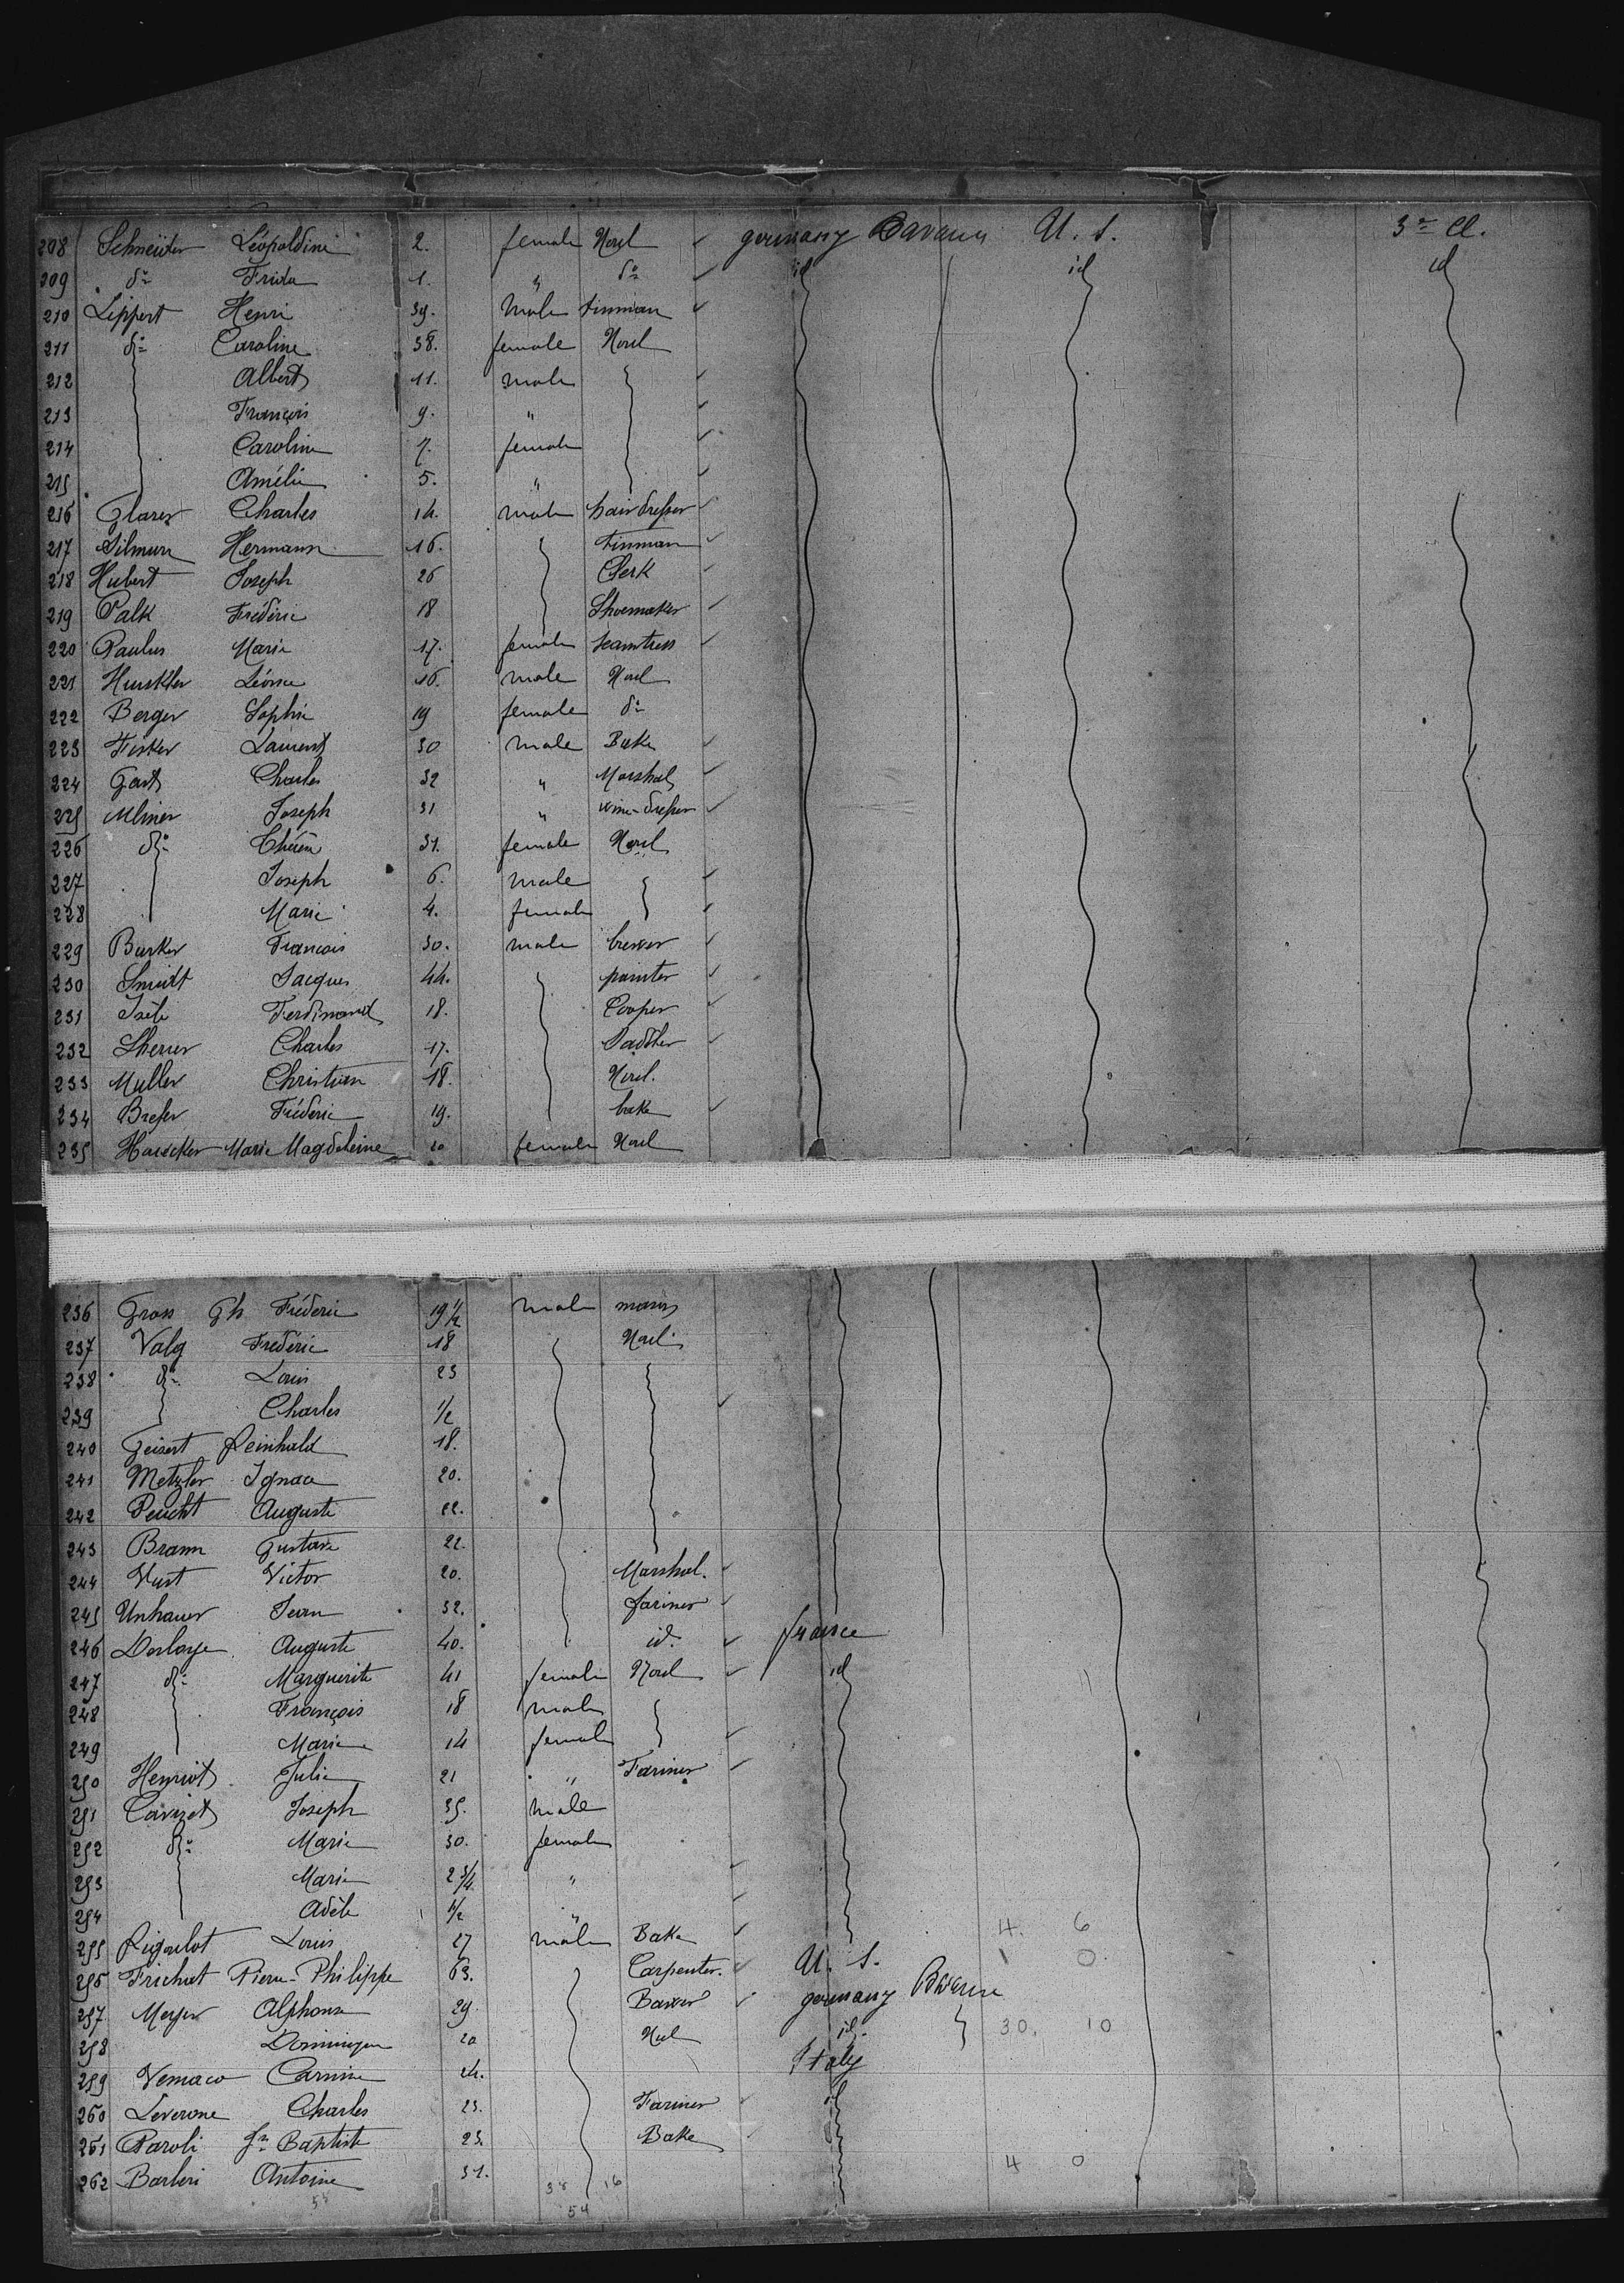 208 Schneider Léopoldine 2. female Noel germany Bavaria U. S. 3e Cl.
209 do Frida 1. " do id id id
210 Lippert Henri 39. Male tinman
211 do Caroline 38. female Noel
212 Albert 11. male
213 François 9. "
214 Caroline 7. female
215 Amélie 5. "
216 Glarer Charles 14. male hairdresser
217 Hermann 16. tinman
218 Hubert Joseph 26 Clerk
219 Palk Frédéric 18 Shoemaker
220 Paulus Marie 17. female seamtress
221 Léonie 16. male Noel
222 Berger Sophie 19 female do
223 Fisker Laurent 30 male Bake
224 Gast Charles 32 " Marshal
225 Mliner Joseph 31 " wine-dresser
226 do 31. female Noel
227 Joseph 6. male
228 Marie 4. female
229 Burker François 30. male brewer
230 Smidt Jacques 44. painter
231 Isele Ferdinand 18. Cooper
232 Sherrer Charles 17. Saddler
233 Muller Christian 18. Noel.
234 Breser Frédéric 19. bake
235 Haecker Marie Magdeleine 20 female Noel
236 Gross Gh Fréderic 19 1/2 male mason
237 Valg Frédéric 18 Noel
238 do Louis 23
239 Charles 1/2
240 Geisert Reinhald 18.
241 Metzler Ignace 20.
242 Peucht Auguste 22.
243 Braun Gustave 22.
244 Wust Victor 20. Marshal.
245 Unhauer Jean 32. farmer
246 Deslaye Auguste 40. id. france
247 do Marguerite 41 female Noel id
248 François 18 male
249 Marie 14 female
250 Henriot Julie 21 " Farmer
251 Cavizet Joseph 35. male
252 do Marie 30. female
253 Marie 2 3/4 "
254 Adèle 1/2 "
255 Rigoulot Louis 27 male Bake 4. 6
256 Frichet Pierre-Philippe 63. Carpenter. U. S. 1 0
257 Meyer Alphonse 29. germany Bavaria
258 Dominique 20 Noel id. 30. 10
259 Vemaco Carmine 24. Italy
260 Leverone Charles 23. Farmer id
261 Paroli Jn Baptiste 23. Bake
262 Barberi Antoine 31. 4 0
38 16
54